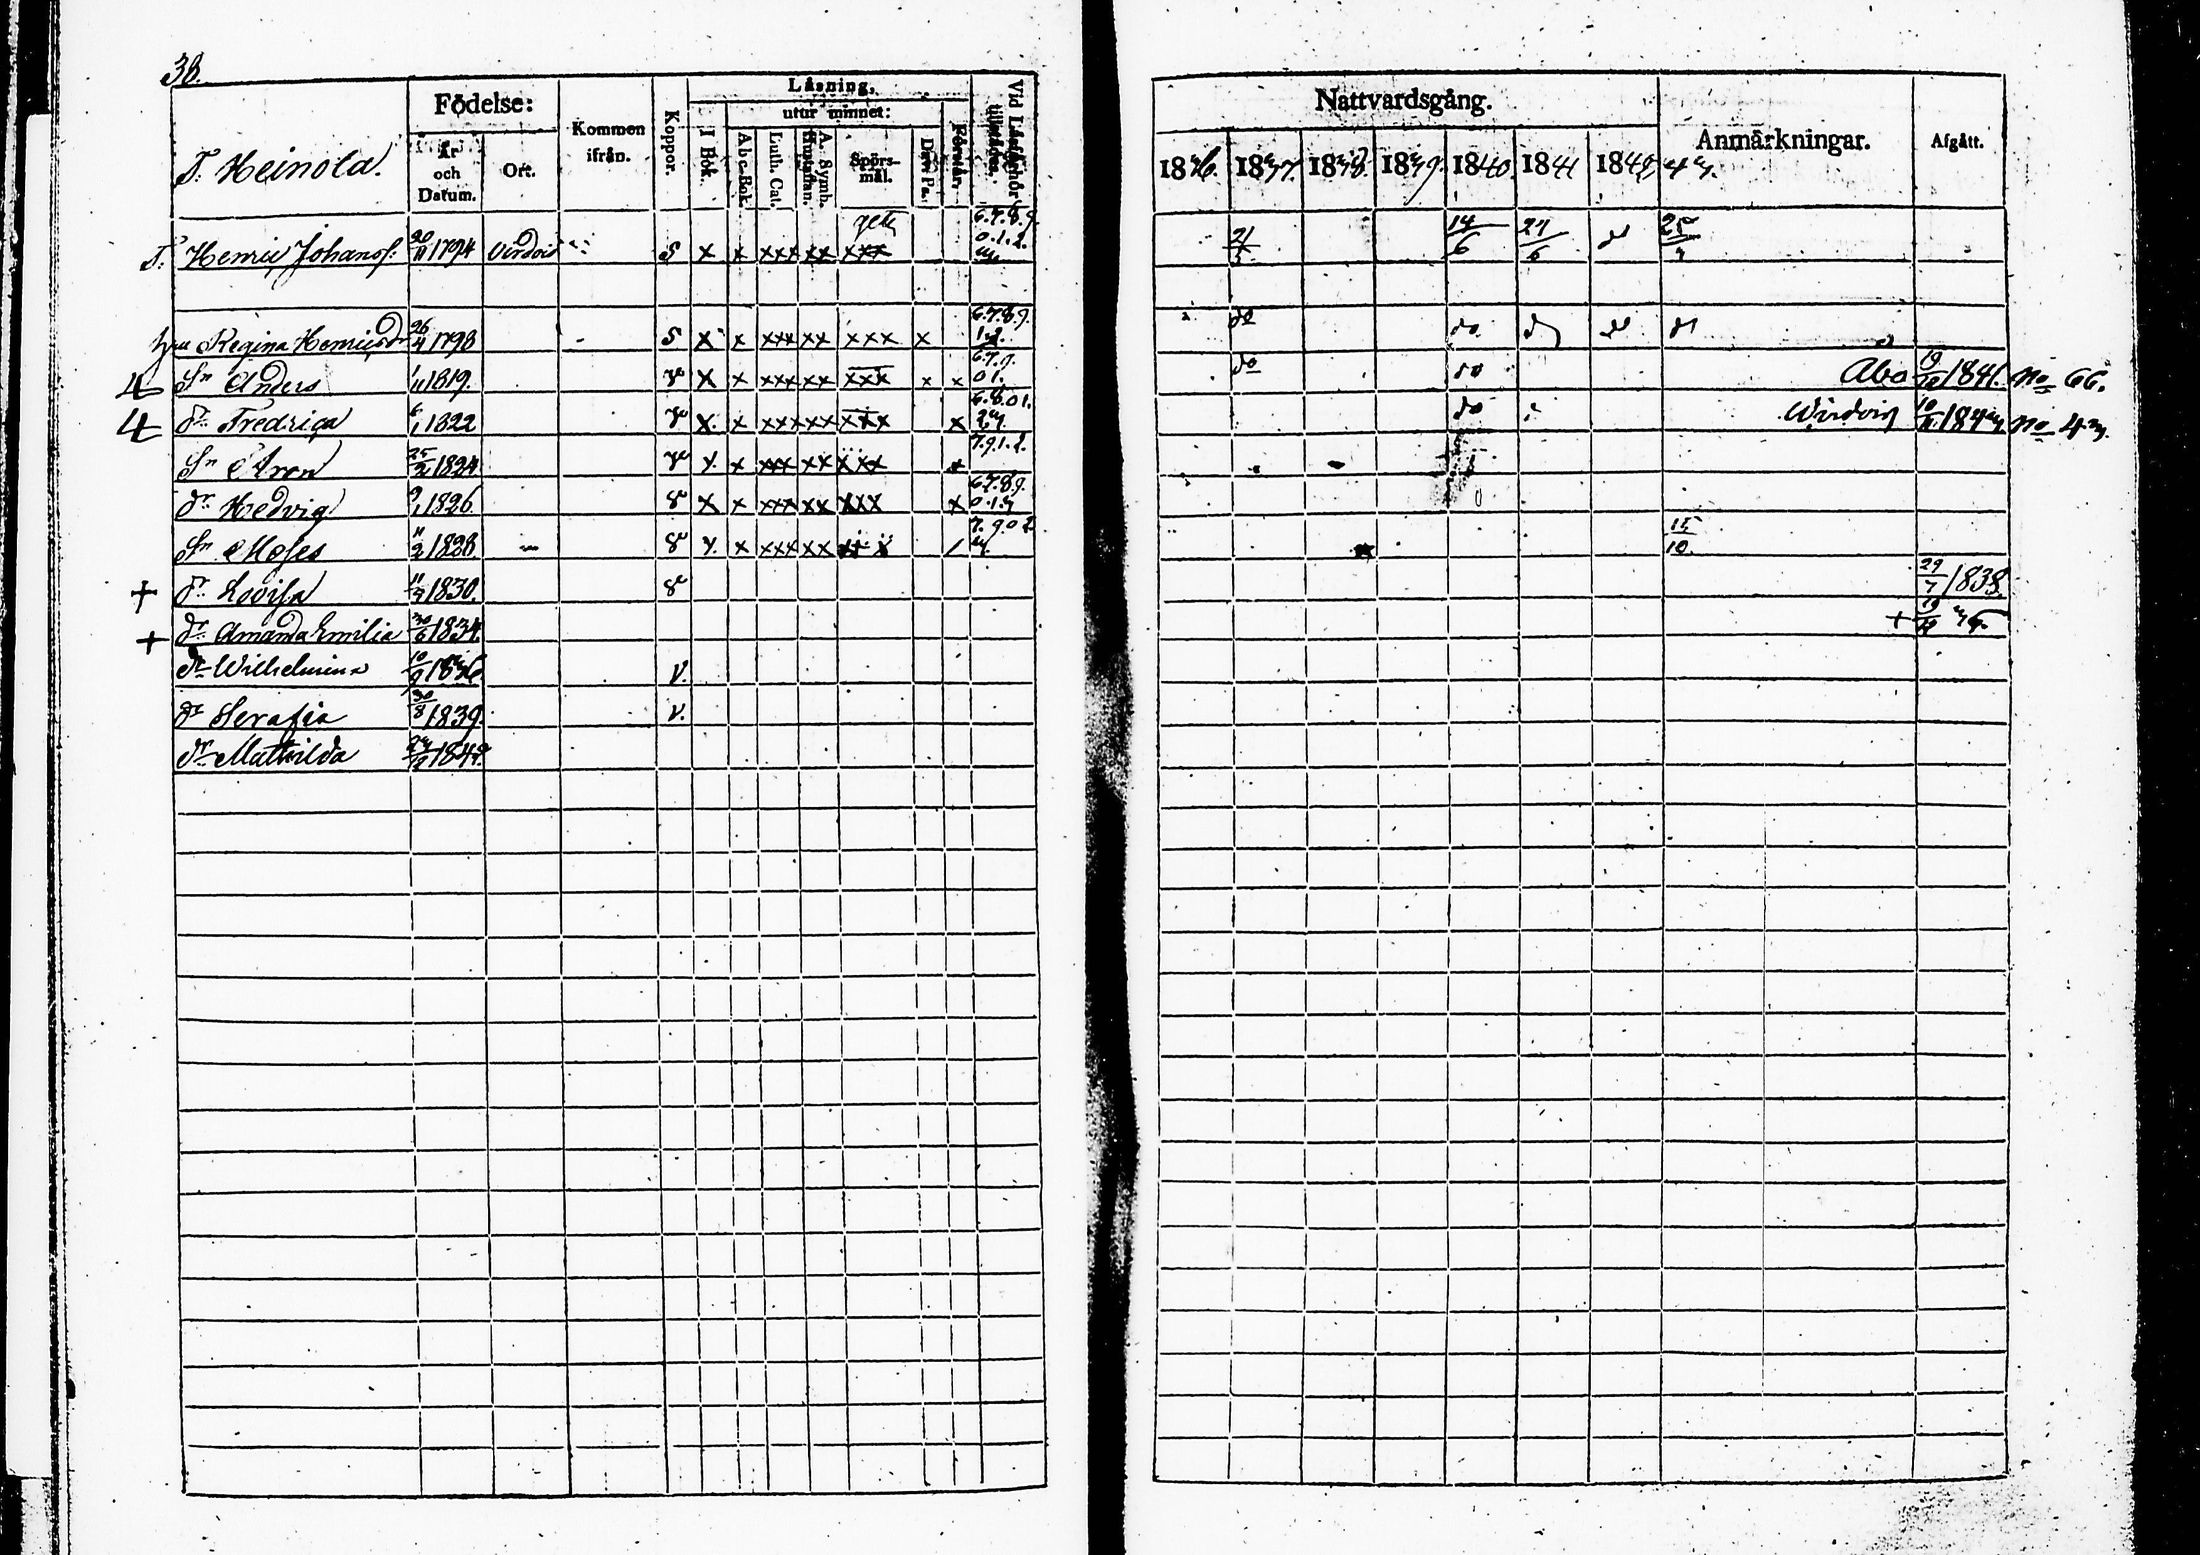 38.
T. Heinola.
Födelse:
År och Datum.
Ort.
Kommen ifrån.
Koppor.
Läsning.
I Bok.
utur minnet:
Abc-Bok.
Luth. Cat.
A. Symb. Hustaflan.
Spörs-mål.
Dav. Ps.
Förstår.
Vid Läsförhör tillstädes.
Nattvardsgång.
1836. 1837. 1838. 1839. 1840. 1841 1842 43.
Anmärkningar.
Afgått.
T. Henric Johanss: 20/11 1794 Virdois S x x xxx xx xxx 6.7.8.9. 0.1.2. 21/5 14/6 27/6 do 25/3
hu Regina Henricsdr 26/4 1798 S x x xxx xx xxx x 6.7.8.9. 1.2. do do do do do
4 Sn Anders 1/11 1819. v x x xxx xx xxx x x 6.7.9. 0 1. do do Åbo 19/12 1841. No 66.
4 dr Fredrica 6/1 1822 v x x xxx xx xxx x 6.8.0 1. 23 do Wirdois 10/11 1843 No 43.
Sn Aron 25/2 1824 v x x xxx xx xxx x 7.9.1.2.
dr Hedvig 9/1 1826 v x x xxx xx xxx x 6.7.8.9. 0.1.3
Sn Moses 11/2 1828 v x x xxx xx xx x / 7.9.0 2 3. 15/10.
+ dr Lovisa 11/7 1830. v 29/7 1838.
+ dr Amanda Emilia 30/6 1834. + 19/12 36.
dr Wilhelmina 10/9 1836 v.
dr Serafia 30/8 1839. v.
dr Mathilda 23/12 1842